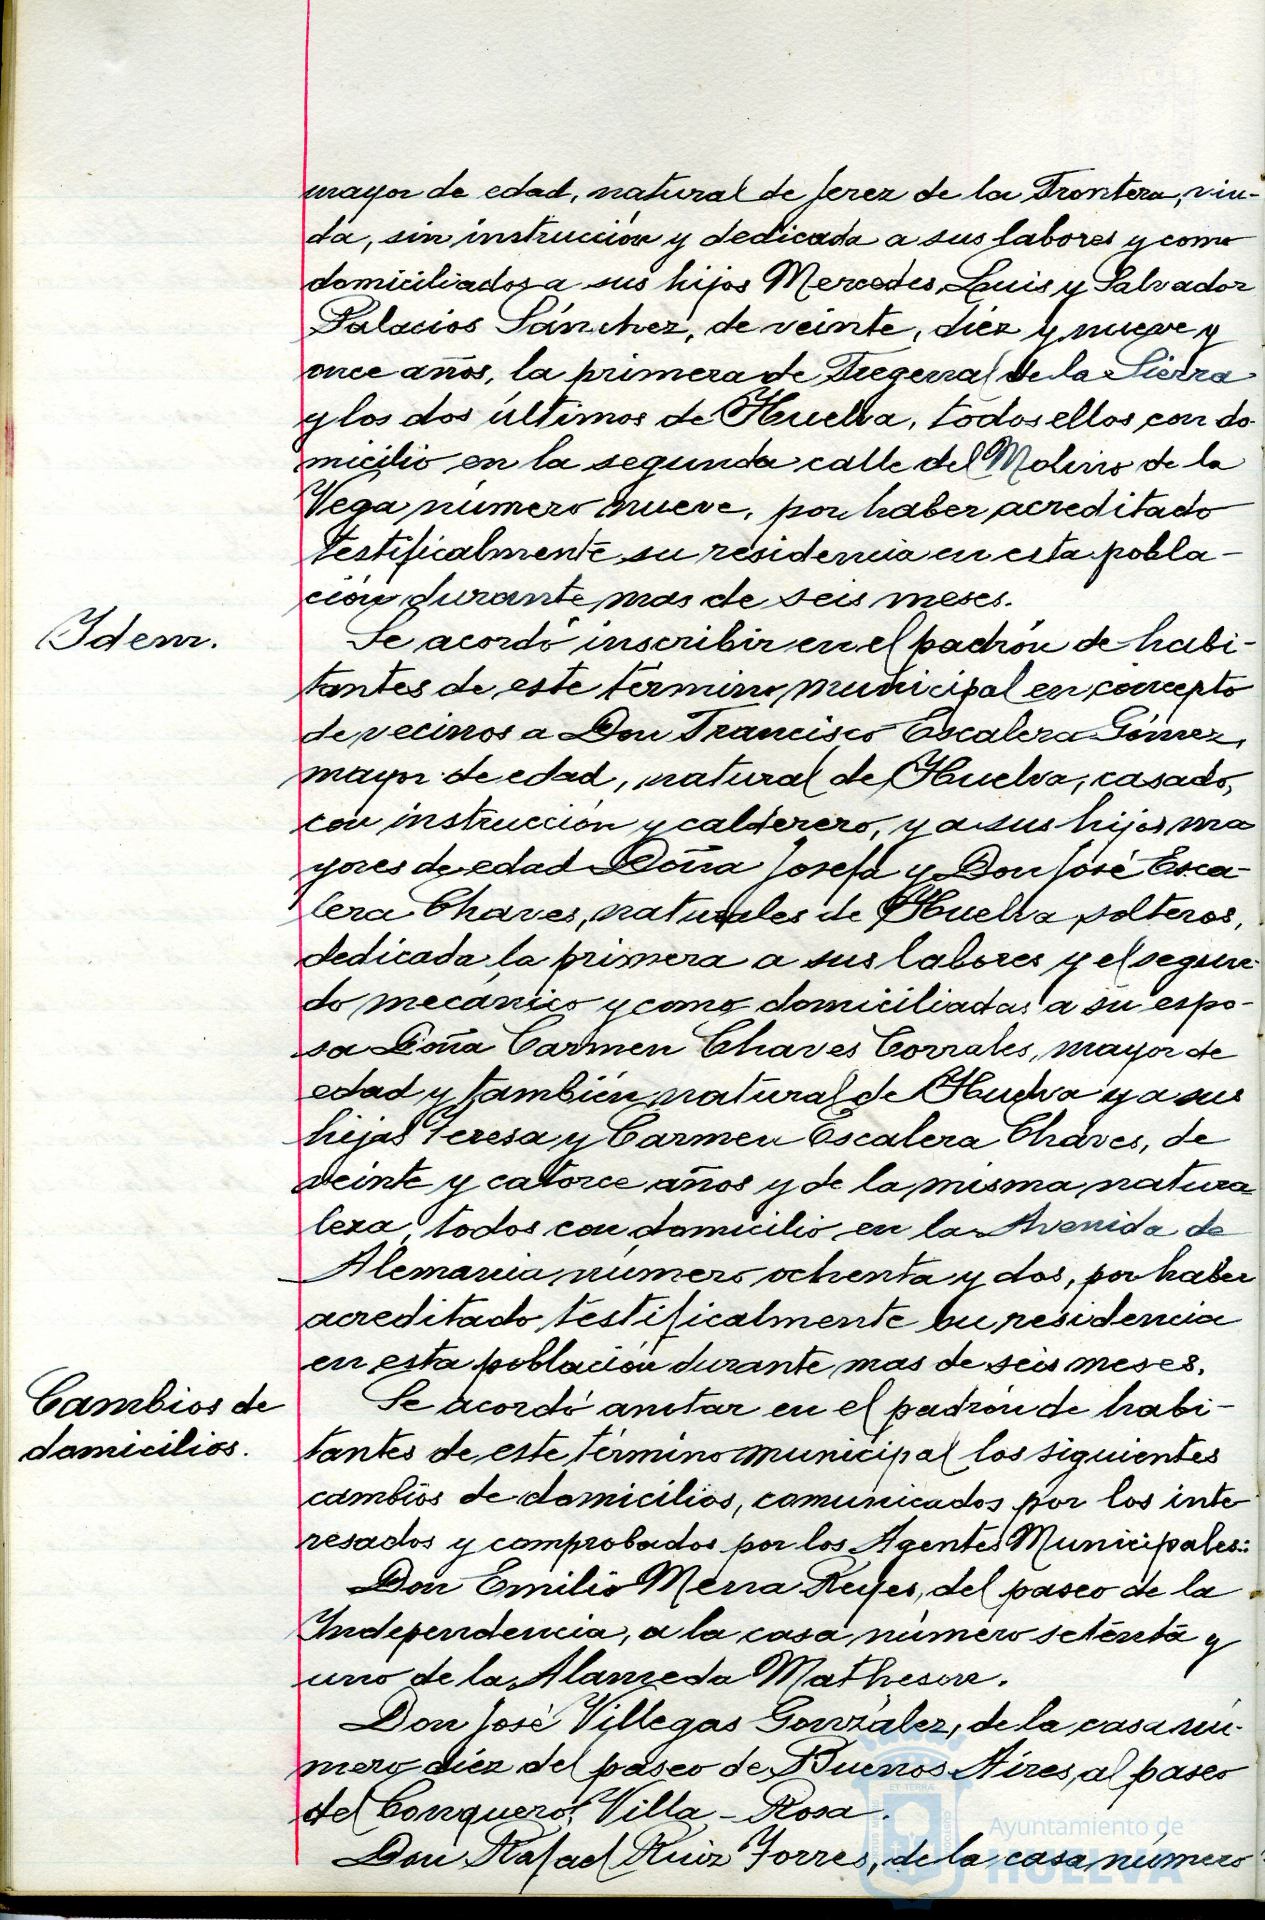 mayor de edad, natural de Jerez de la Frontera, viu-
da, sin instrucción y dedicada a sus labores y como
domiciliados a sus hijos Mercedes, Luis y Salvador
Palacios Sánchez, de veinte, diez y nueve y
once años, la primera de Fregenal de la Sierra
y los dos últimos de Huelva, todos ellos con do-
micilio en la segunda calle del Molino de la
Vega número nueve, por haber acreditado
testificalmente su residencia en esta pobla-
ción durante mas de seis meses.
Idem.
Se acordó inscribir en el padrón de habi-
tantes de este término municipal en concepto
de vecinos a Don Francisco Escalera Gómez,
mayor de edad, natural de Huelva, casado,
con instrucción y calderero, y a sus hijos ma
yores de edad Doña Josefa y Don José Esca-
lera Chaves, naturales de Huelva solteros,
dedicada la primera a sus labores y el segun-
do mecánico y como domiciliadas a su espo-
sa Doña Carmen Chaves Corrales, mayor de
edad y también natural de Huelva y a sus
hijas Teresa y Carmen Escalera Chaves, de
veinte y catorce años y de la misma natura
leza, todos con domicilio en la Avenida de
Alemania número ochenta y dos, por haber
acreditado testificalmente su residencia
en esta población durante mas de seis meses.
Cambios de
domicilios.
Se acordó anotar en el padrón de habi-
tantes de este término municipal los siguientes
cambios de domicilios, comunicados por los inte
resados y comprobados por los Agentes Municipales:
Don Emilio Merra Reyes, del paseo de la
Independencia, a la casa número setenta y
uno de la Alameda Matheson.
Don José Villegas González, de la casa nú-
mero diez del paseo de Buenos Aires, al paseo
del Conquero, Villa-Rosa.
Don Rafael Ruiz Torres, de la casa número
Ayuntamiento de
HUELVA